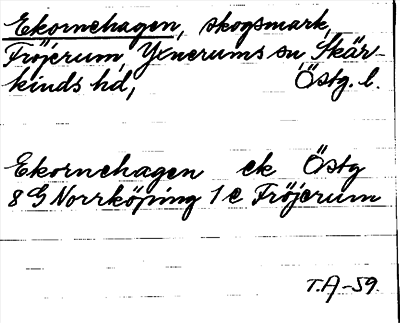 Ekornehagen, skogsmark,
Fröjerum, Yxnerums sn, Skär-
kinds hd, Östg. l.
Ekornehagen ek Östg
8 G Norrköping 1 c Fröjerum
T.A-59